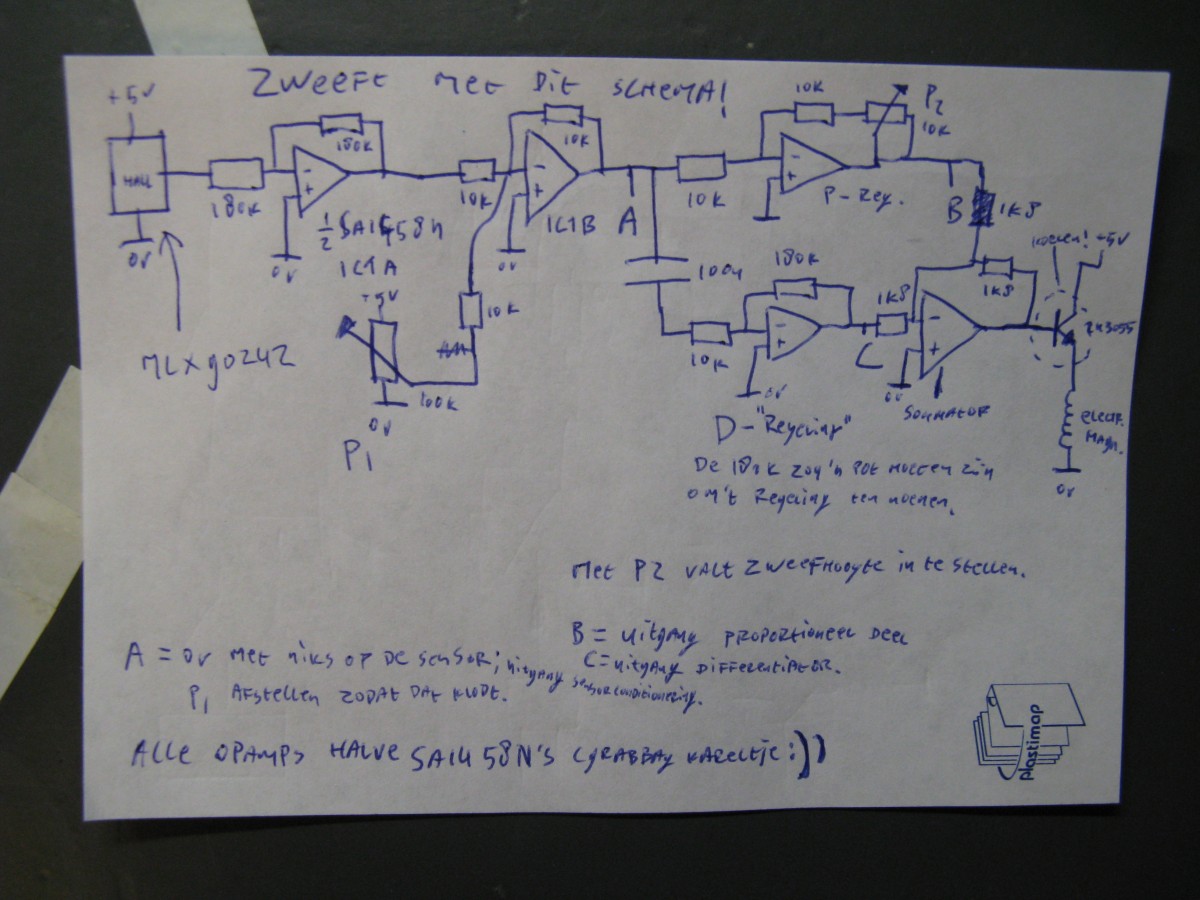 ZWEEFT MET DIT SCHEMA!
+5V
HALL
0V
MLX90242
180K
180K
0V
IC1A
10K
10K
0V
IC1B
10K
+5V
100K
0V
P1
A
10K
10K
P2
10K
P-Reg.
B
1K8
100n
10K
180K
0V
C
1K8
1K8
0V
SOMMATOR
KOELEN!
+5V
2N3055
ELECTR.
MAGN.
0V
D-"Regeling"
De 180K zou'n pot moeten zijn
om't Regeling ten noemen.
Met P2 valt zweefhoogte in te stellen.
A = 0V met niks op de sensor; uitgang sensorconditionering.
P1 AFSTELLEN ZODAT DAT KLOPT.
B = uitgang PROPORTIONEEL DEEL
C = uitgang DIFFERENTIATOR.
ALLE OPAMPS HALVE SA1458N'S (GRABBAG KAReltje :))
plastimap